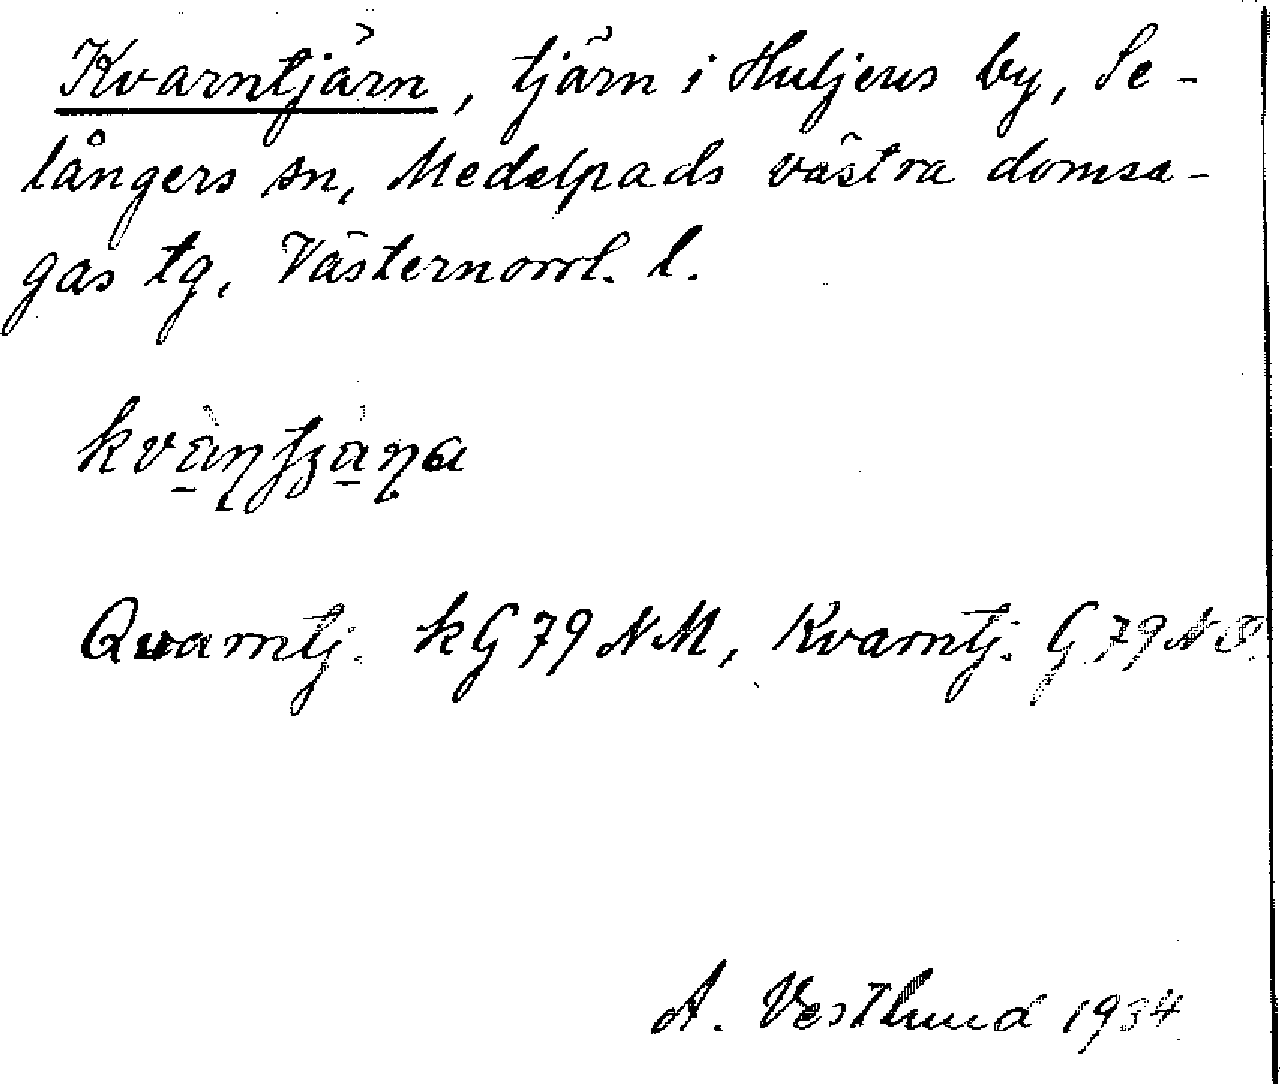 Kvarntjärn, tjärn i Huljens by, Se-
långers sn, Medelpads västra domsa-
gas tg, Västernorrl. l.
Qvarntj. kG79NM, Kvarntj. G79NO.
A. Vestlund 1934